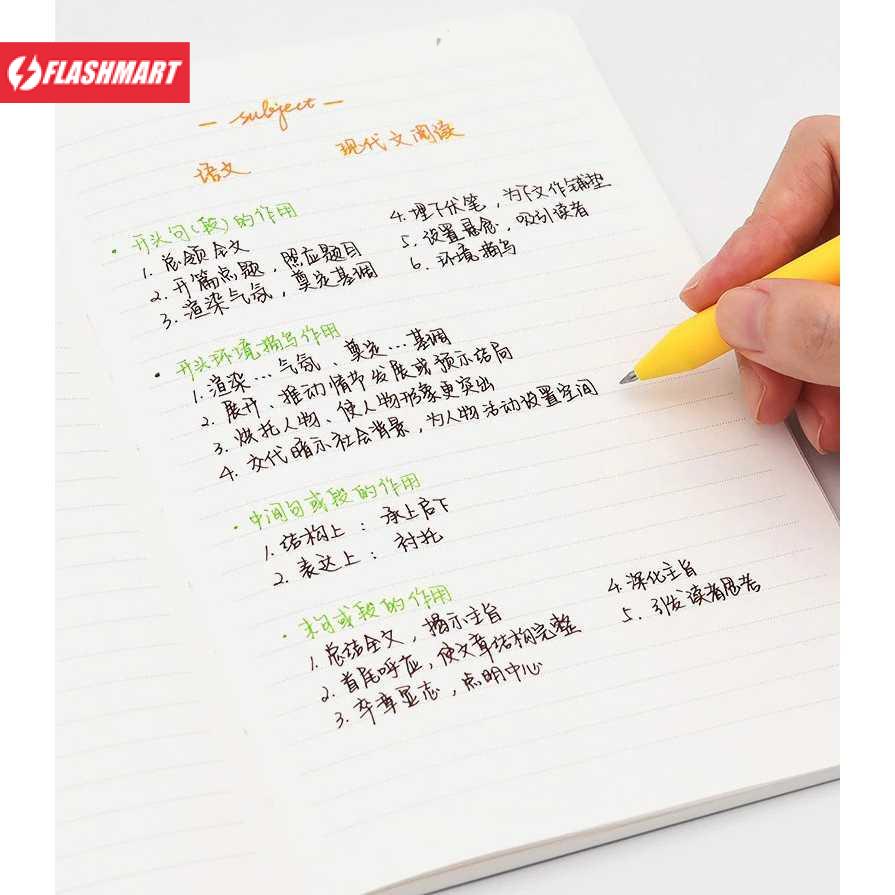 FLASHMART
— subject —
语文 现代文阅读
· 开头句(段)的作用
1. 总领全文
2. 开篇点题，照应题目
3. 渲染气氛，奠定基调
4. 埋下伏笔，为下文作铺垫
5. 设置悬念，吸引读者
6. 环境描写
· 开头环境描写作用
1. 渲染…气氛、奠定…基调
2. 展开、推动情节发展或预示结局
3. 烘托人物、使人物形象更突出
4. 交代暗示社会背景，为人物活动设置空间
· 中间句或段的作用
1. 结构上：承上启下
2. 表达上：衬托
· 末句或段的作用
1. 总结全文，揭示主旨
2. 首尾呼应，使文章结构完整
3. 卒章显志，点明中心
4. 深化主旨
5. 引发读者思考